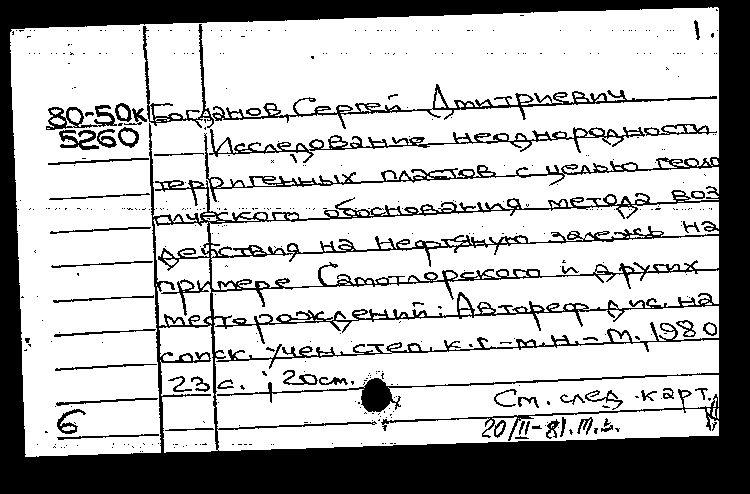 1.
80-50к Богданов, Сергей Дмитриевич.
5260
Исследование неоднородности
терригенных пластов с целью геоло
гического обоснования метода воз
действия на нефтяную залежь на
примере Самотлорского и других
месторождений: Автореф. дис. на
соиск. учен. степ. к. г.-м. н. - М., 1980
23 с. ; 20 см.
См. след. карт.
6
20/II-81.